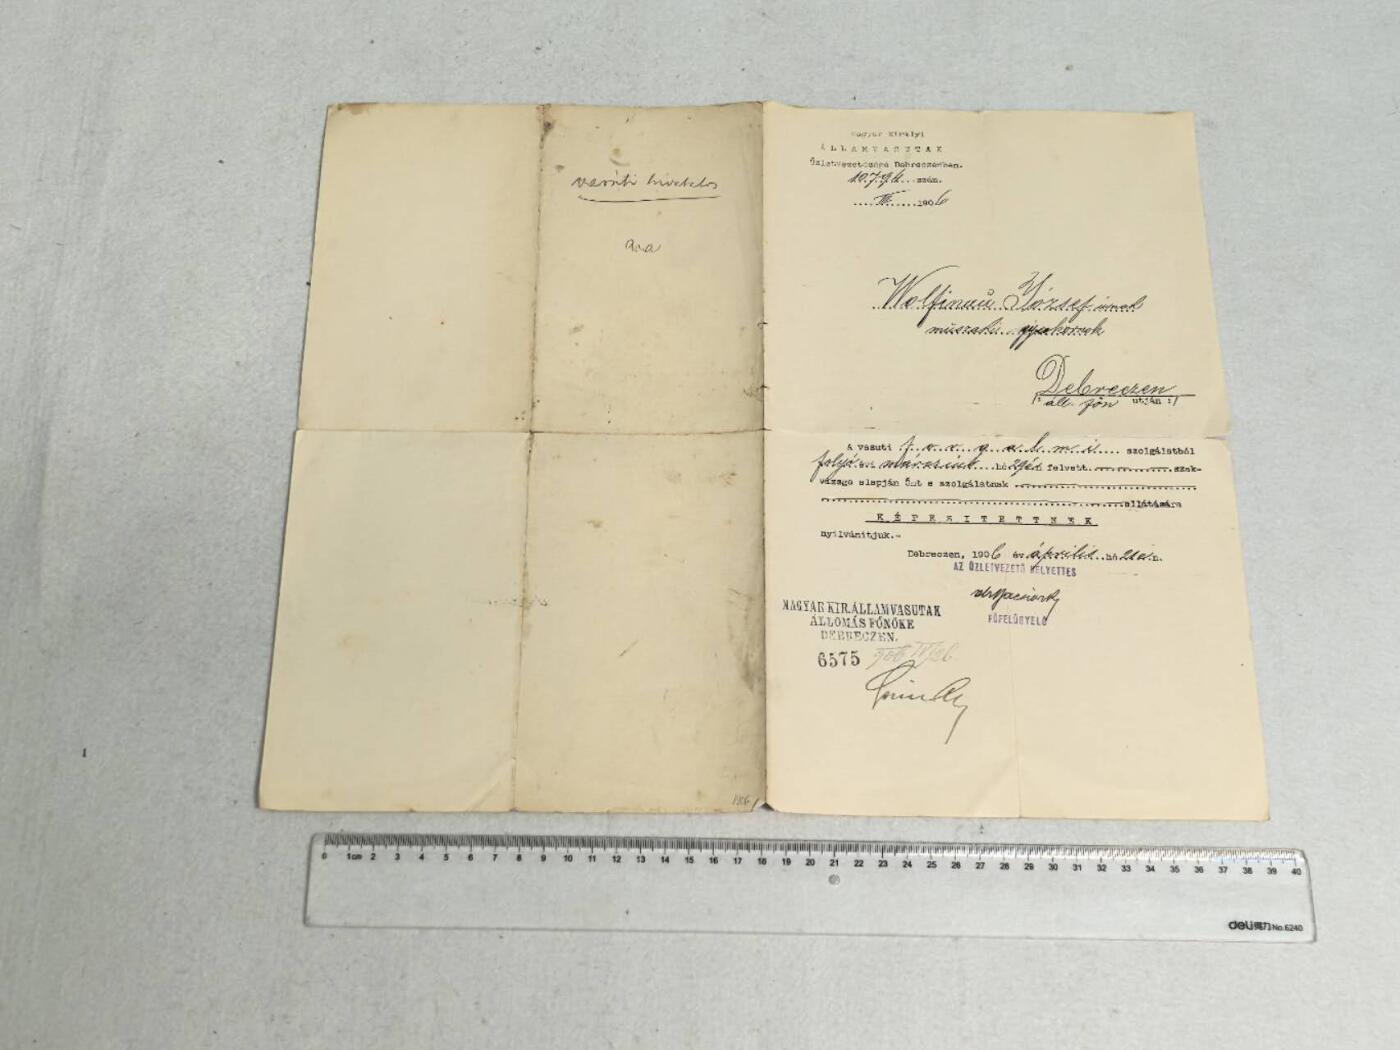 vasúti hivatalos
Magyar Királyi
ÁLLAMVASUTAK
Üzletvezetősége Debreczenben.
szám.
III. 1906
József úrnak
műszaki gyakornok
Debreczen
/: áll. főn utján :/
A vasuti forgalmi szolgálatból
folyó évi márczius hó 29én felvett szak-
vizsga alapján Önt e szolgálatnak
ellátására
KÉPESITETTNEK
nyilvánítjuk.-
Debreczen, 1906 év április hó n.
AZ ÜZLETVEZETŐ HELYETTES
FŐFELÜGYELŐ
MAGYAR KIR. ÁLLAMVASUTAK
ÁLLOMÁS FŐNÖKE
DEBRECZEN.
6575 906 IV/26
1906
0 1cm 2 3 4 5 6 7 8 9 10 11 12 13 14 15 16 17 18 19 20 21 22 23 24 25 26 27 28 29 30 31 32 33 34 35 36 37 38 39 40
deli得力 No.6240